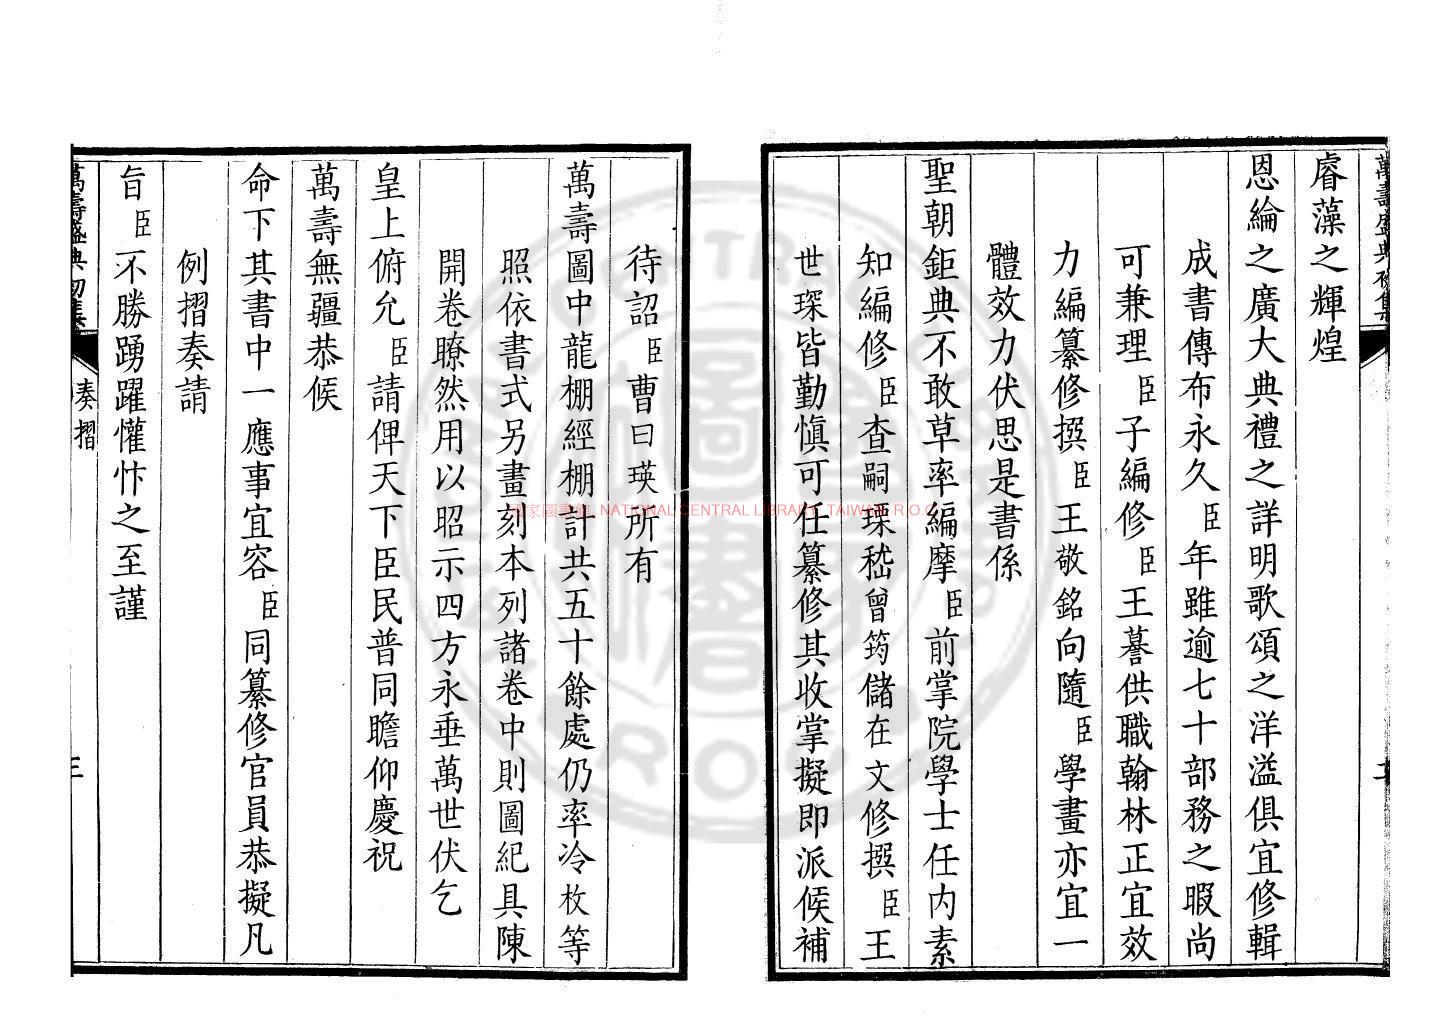 萬壽盛典初集
睿藻之輝煌
恩綸之廣大典禮之詳明歌頌之洋溢俱宜修輯
成書傳布永久臣年雖逾七十部務之暇尚
可兼理臣子編修臣王謩供職翰林正宜效
力編纂修撰臣王敬銘向隨臣學畫亦宜一
體效力伏思是書係
聖朝鉅典不敢草率編摩臣前掌院學士任内素
知編修臣查嗣瑮嵇曾筠儲在文修撰臣王
世琛皆勤愼可任纂修其收掌擬即派候補
待詔臣曹曰瑛所有
萬壽圖中龍棚經棚計共五十餘處仍率冷枚等
照依書式另畫刻本列諸卷中則圖紀具陳
開卷瞭然用以昭示四方永垂萬世伏乞
皇上俯允臣請俾天下臣民普同瞻仰慶祝
萬壽無疆恭候
命下其書中一應事宜容臣同纂修官員恭擬凡
例摺奏請
旨臣不勝踴躍懽忭之至謹
萬壽盛典初集
奏摺
三
國家圖書館 NATIONAL CENTRAL LIBRARY, TAIWAN, R.O.C